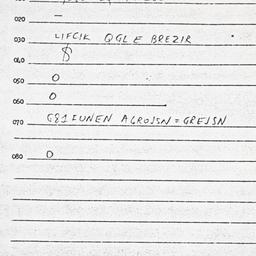 020 –
030 LIFCIK QGLE BREZIR
040 $
050 0
060 0
070 G81IUNEN AGROJSN = GREJSN
080 0